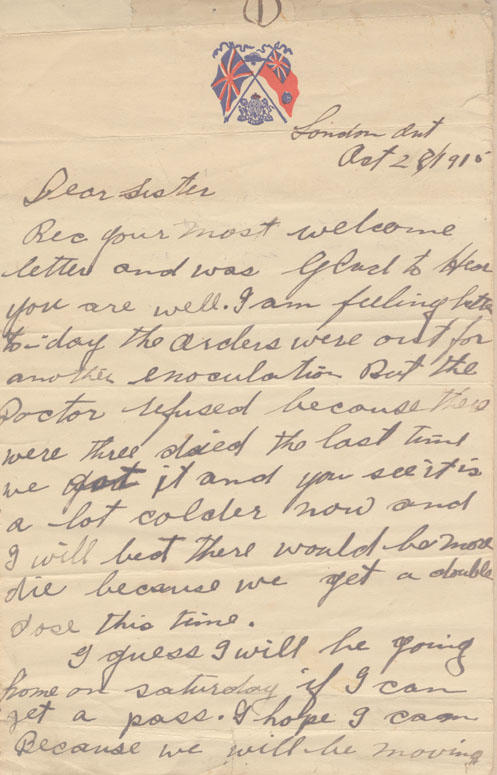 1
London Ont
Oct 28/1915
Dear Sister
Rec your most welcome
letter and was Glad to Hear
you are well. I am feeling better
to-day the orders were out for
another enoculation But the
Doctor refused because there
were three died the last time
we got it and you see it is
a lot colder now and
I will bet there would be more
die because we get a double
dose this time.
I guess I will be going
home on saturday if I can
get a pass. I hope I can
Because we will be moving